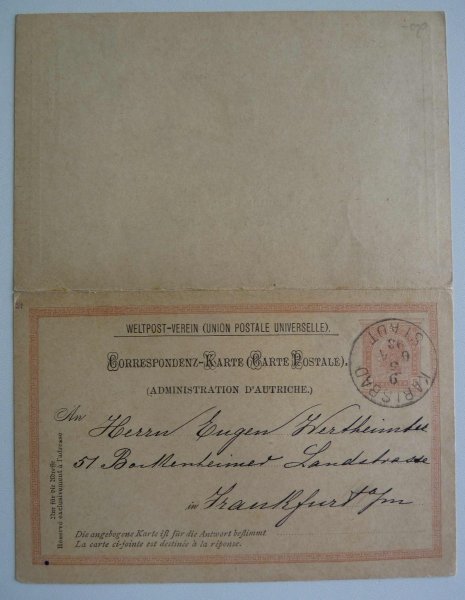 WELTPOST-VEREIN (UNION POSTALE UNIVERSELLE).
CORRESPONDENZ-KARTE (CARTE POSTALE).
(ADMINISTRATION D'AUTRICHE.)
KARLSBAD STADT
9 5
93
An Herrn Eugen
51 Bockenheimer Landstrasse
in Frankfurt a/m
Nur für die Adresse
Réservé exclusivement à l'adresse
Die angebogene Karte ist für die Antwort bestimmt
La carte ci-jointe est destinée à la réponse.